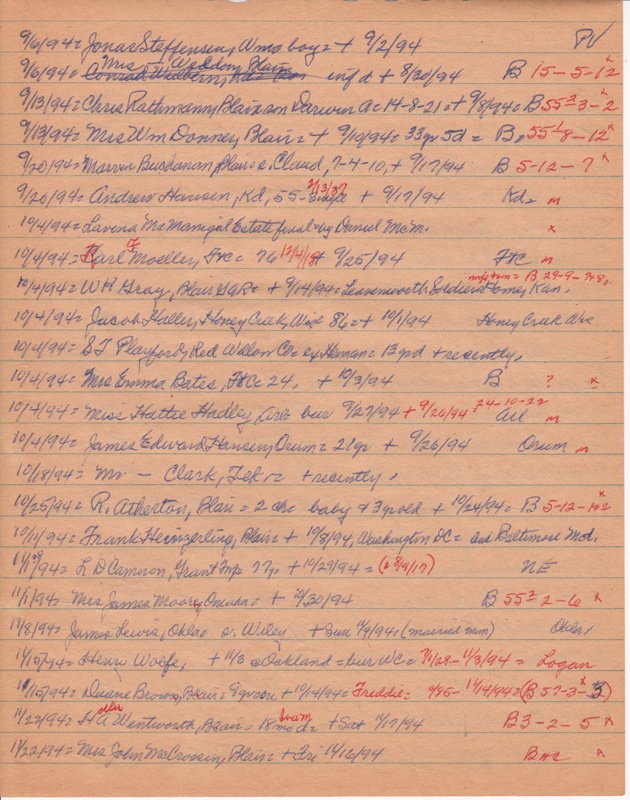 9/6/94 = Jonas Steffensen, Wms boy = + 9/2/94 PV
9/6/94 = Mrs Weddom Blair inf d + 8/30/94 B 15-5-12 x
9/13/94 = Chris Rathmann, Blair = son Darwin A = 14-8-21 = + 9/8/94 = B 55 2 3-2 x
9/13/94 = Mrs Wm Donney, Blair = + 9/10/94 = 33yr 5d = B = 55 1 8-12 x
9/20/94 = Marvin Buchanan, Blair s. Claud, 7-4-10, + 9/17/94 B 5-12-7 x
9/20/94 = Andrew Hansen, Kd, 55- 2/13/37 + 9/17/94 Kd = m
10/4/94 = Lavena McManigal Estate final = by Daniel McM. x
10/4/94 = Karl Moeller, FtC = 76 + 9/25/94 FtC m
10/4/94 = WH Gray, Blair GAR = + 9/14/94 = Leavenworth Soldiers Home, Kan. = B 29-9-7+8,
10/4/94 = Jacob Haller, Honey Creek, Wis 86 = + 10/1/94 Honey Creek Wis
10/4/94 = ST Playford, Red Willow Co = ex Herman = B yd + recently,
10/4/94 = Mrs Emma Bates, FtC = 24, + 10/3/94 B ? x
10/4/94 = Miss Hattie Hadley, Arl = bur 9/27/94 + 9/26/94 = 24-10-22 Arl m
10/4/94 = James Edward Hansen, Orum = 21yr + 9/26/94 Orum m
10/18/94 = Mr — Clark, Tek = + recently,
10/25/94 = R. Atherton, Blair = 2 ch = baby & 3 yr old + 10/24/94 = B 5-12-1+2 x
10/11/94 = Frank Heinzerling, Blair = + 10/8/94, Washington DC = and Baltimore Md.
11/1/94 = L D Cameron, Grant Twp 77y = + 10/29/94 = NE
11/1/94 = Mrs James Moore, Omaha = + 10/30/94 B 55 2 2-6 x
11/8/94 = James Lewis, Okla = s. Wiley + Sun 11/4/94 = (married man) Okla,
11/15/94 = Henry Wolfe, + 11/3 Oakland = bur WC = 11/3/94 = Logan
11/15/94 = Duane Brown, Blair = 9yr son + 11/14/94 = Freddie = 9/85- 11/14/94 = (B 57-3-3) x
11/22/94 = H A Wentworth, Blair - 18 mo d = + Sat 11/17/94 B 3-2-5 x
11/22/94 = Mrs John McCrossin, Blair = + Fri 11/16/94 B x